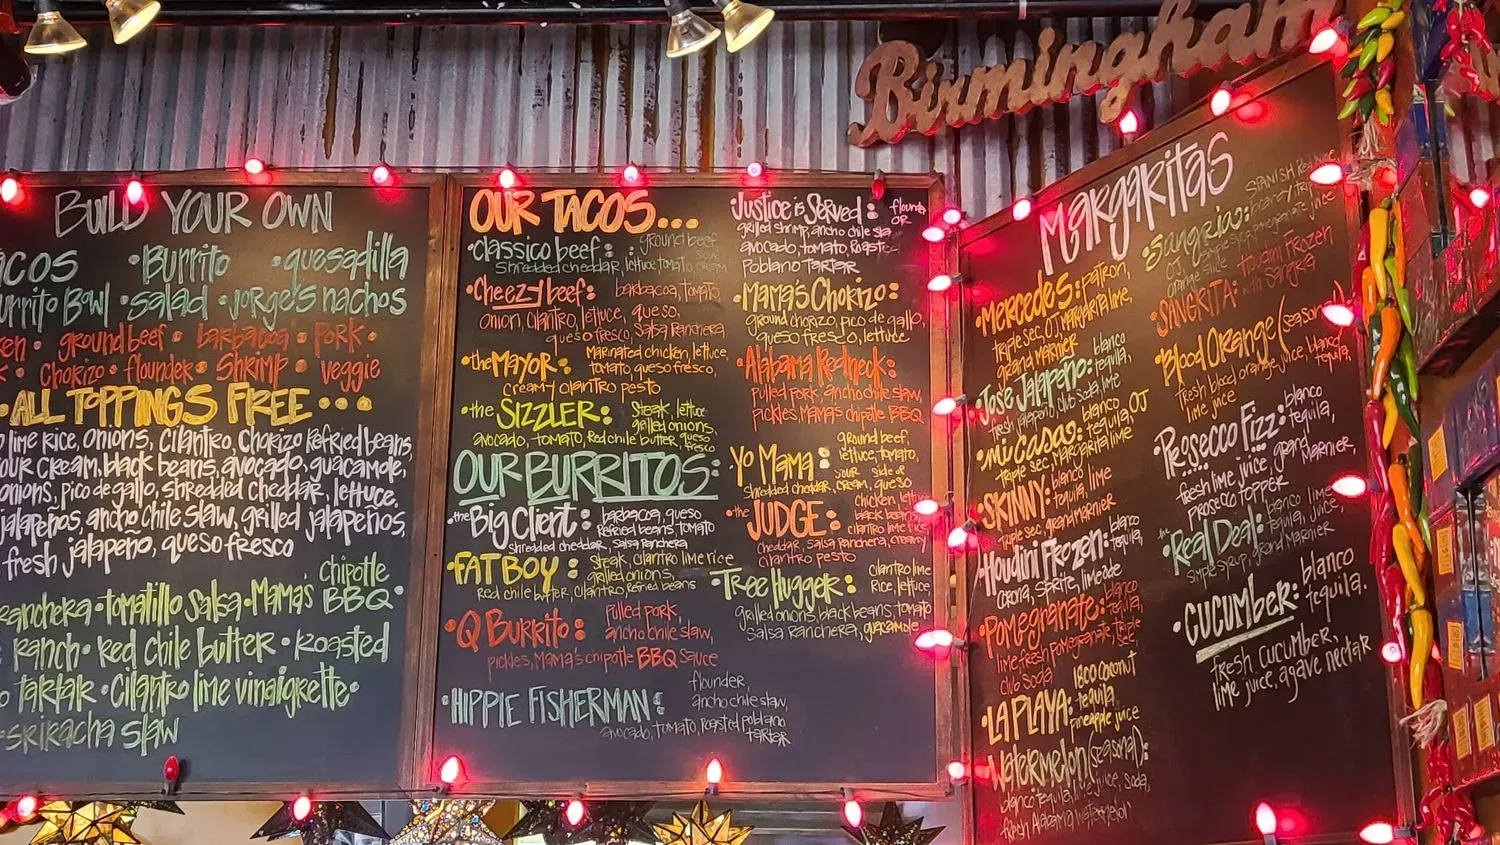 Birmingham
BUILD YOUR OWN
•Burrito •quesadilla
Bowl •salad •Jorge's nachos
ground beef • barbacoa • Pork •
• Chorizo • flounder • Shrimp • veggie
•ALL TOPPINGS FREE•••
lime rice, onions, cilantro, chorizo refried beans,
cream, black beans, avocado, guacamole,
onions, pico de gallo, shredded cheddar, lettuce,
jalapeños, ancho chile slaw, grilled jalapeños,
fresh jalapeño, queso fresco
ranchera •tomatillo salsa •Mama's chipotle BBQ•
ranch • red chile butter • Roasted
tartar • Cilantro lime vinaigrette•
sriracha slaw
OUR TACOS...
•Classico beef: ground beef,
Shredded cheddar, lettuce, tomato, cream
•Cheezy beef: barbacoa, tomato
onion, cilantro, lettuce, queso,
queso fresco, salsa Ranchera
•the MAYOR: Marinated chicken, lettuce,
tomato, queso fresco,
creamy cilantro pesto
•the SIZZLER: Steak, lettuce
grilled onions,
avocado, tomato, Red chile butter, queso
fresco
OUR BURRITOS:
•the Big Client: barbacoa, queso
Refried beans, tomato
shredded cheddar, salsa ranchera
•FAT BOY: Steak, cilantro lime rice
grilled onions,
red chile butter, cilantro, refried beans
•Q Burrito: Pulled pork,
ancho chile slaw,
pickles, Mama's chipotle BBQ Sauce
•HIPPIE FISHERMAN: flounder,
ancho chile slaw,
avocado, tomato, roasted poblano
tartar
•Justice is Served: flounder
OR
grilled shrimp, ancho chile slaw
avocado, tomato Roasted
Poblano Tartar
•Mama's Chorizo:
ground chorizo, pico de gallo,
queso fresco, lettuce
•Alabama Redneck:
pulled pork, ancho chile slaw,
pickles, Mama's chipotle BBQ
•Yo Mama: ground beef,
lettuce, tomato,
sour side of
shredded cheddar, cream, queso
•the JUDGE: chicken lettuce
black beans
cilantro lime rice
cheddar, salsa ranchera, creamy
cilantro pesto
•Tree Hugger: cilantro lime
Rice, lettuce,
grilled onions, black beans, tomato
Salsa Ranchera, guacamole
MARGARITAS
•Mercedes: patron,
triple sec, OJ, margarita lime,
grand marnier
•José Jalapeño: blanco
tequila,
fresh jalapeño, club soda, lime
•Mi Casa: blanco
tequila, OJ
triple sec, margarita lime
•SKINNY: blanco
tequila, lime
triple sec, grand marnier
•Houdini Frozen: blanco
tequila,
corona, sprite, limeade
•Pomegranate: blanco
tequila,
lime, fresh pomegranate, triple
sec,
club soda
•LA PLAYA: 1800 coconut
tequila,
pineapple juice
•Watermelon (seasonal):
blanco tequila, lime juice, soda,
fresh Alabama watermelon
•Sangria: SPANISH Red wine,
brandy, triple
OJ, pomegranate juice
orange slice
•SANGRITA: Houdini Frozen
with sangria
•Blood Orange (seasonal
fresh blood orange juice, blanco
tequila,
lime juice
•Prosecco Fizz: blanco
tequila,
fresh lime juice, grand Marnier,
prosecco topper
•the Real Deal: blanco lime
tequila, juice,
simple syrup, grand Marnier
•CUCUMBER: blanco
tequila.
fresh cucumber,
lime juice, agave nectar